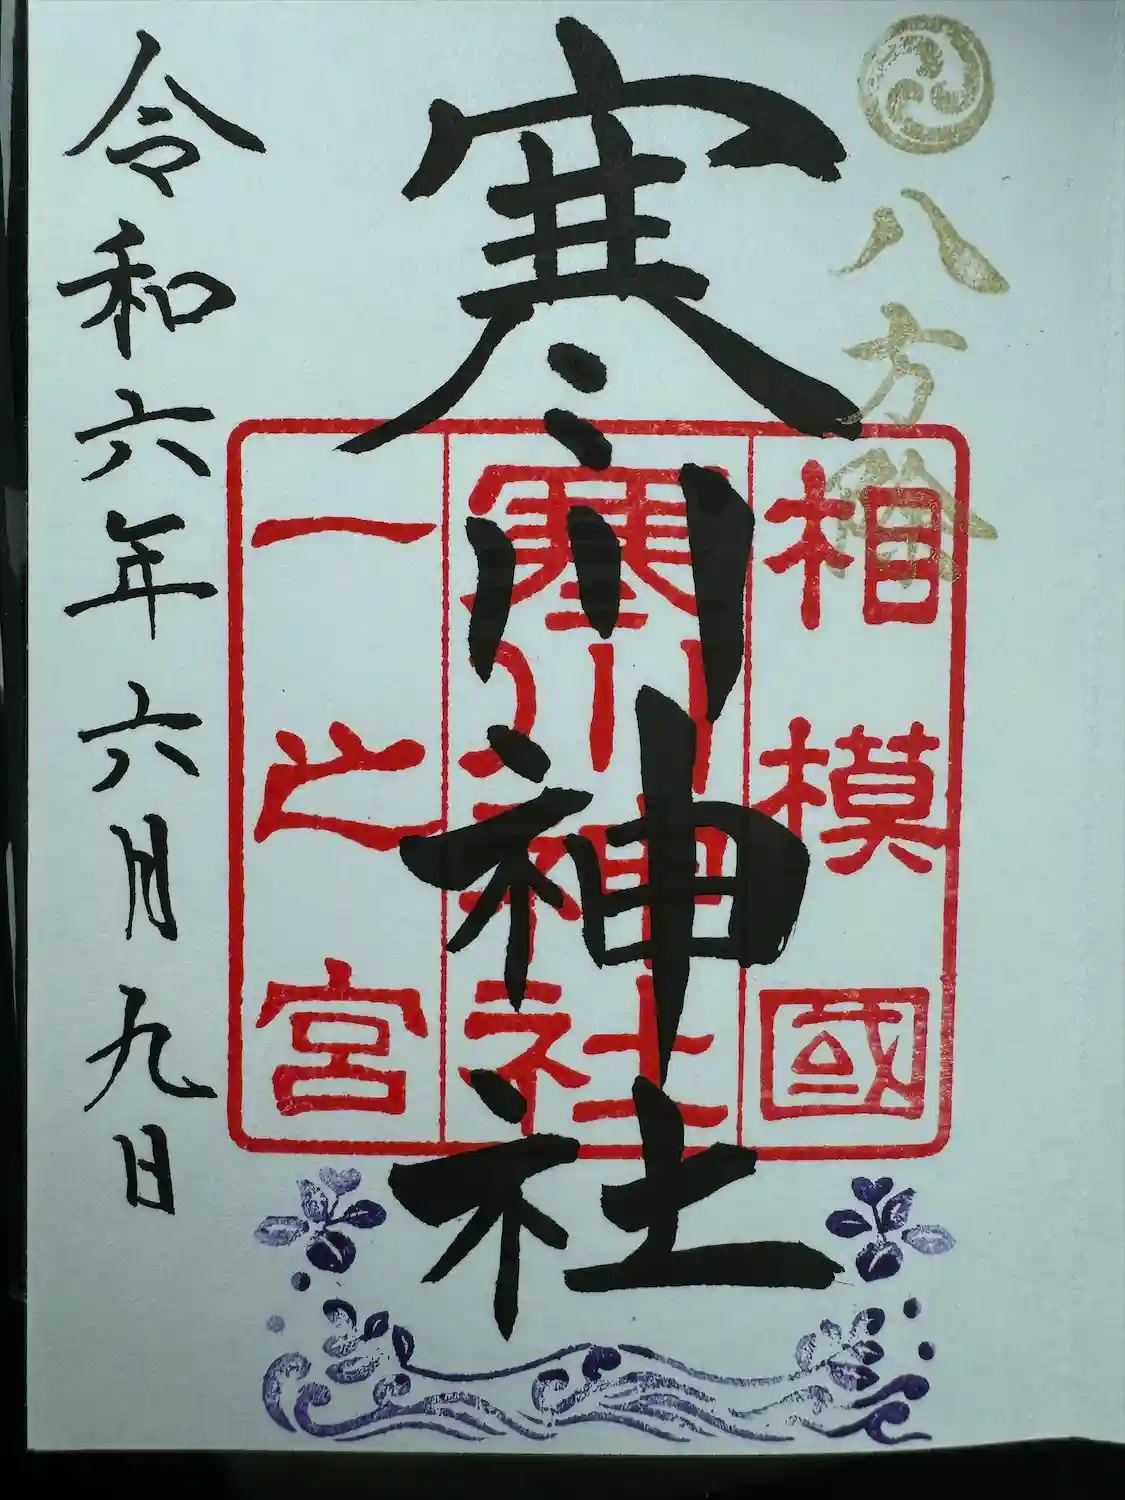 八方除
寒川神社
相模國
寒川神社
一之宮
令和六年六月九日